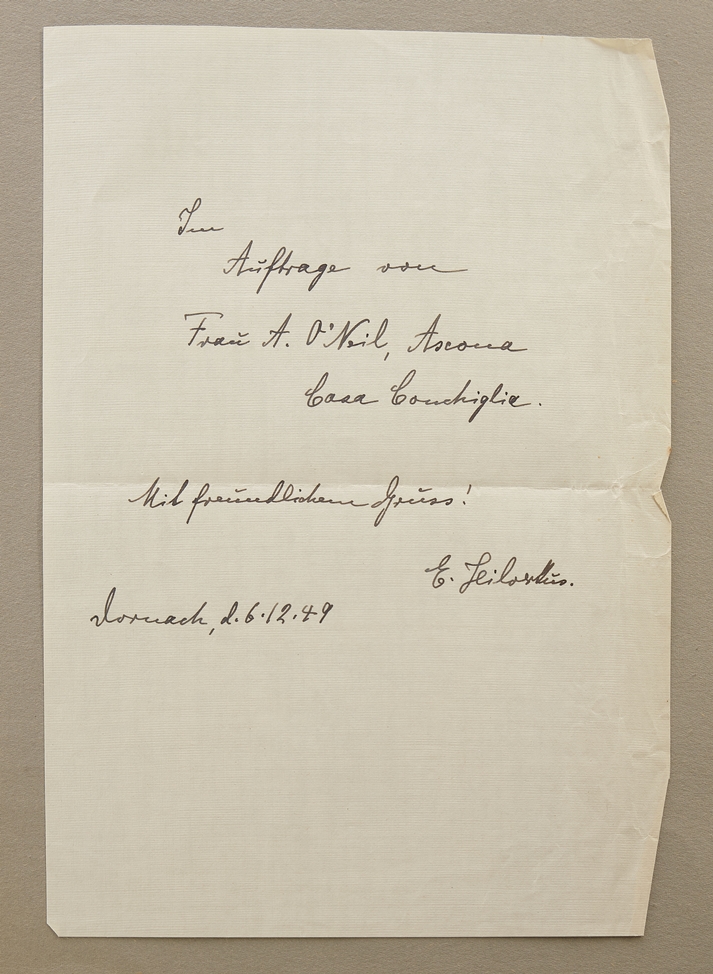 Im
Auftrage von
Frau A. O'Neil, Ascona
Casa Conchiglia.
Mit freundlichem Gruss!
E.
Dornach, d. 6.12.49